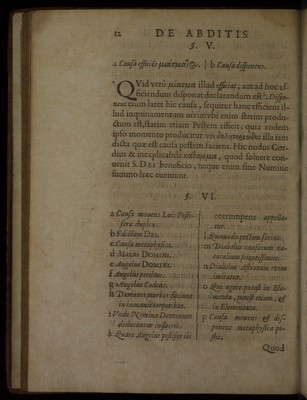 12 DE ABDITIS
§. V.
a Causa efficiēs | b Causa disponens.
Quid verò illud efficiat, aut ad hoc ef-
ficiendum disponat declarandum est? Dispo-
nens enim latet hic causa, sequitur hanc efficiens il-
lud inquinamentum enim statim produ-
ctum est, statim etiam Pestem efficit, quia eodem
ipso momento producitur illa iam
dicta quæ est causa pestem faciens. Hic nodus Gor-
dius & inexplicabile quod soluere con-
uenit S. DEI beneficio, neque enim sine Numine
summo hæc eueniunt.
§. VI.
a Causa mouens Luis Pesti-
feræ duplex.
b Edictum DEI.
c Causa metaphysica.
d Manus DOMINI.
e Angelus DOMINI.
f Angelus percutiens.
g Angelus Cædens.
h Dæmonum
in humanis corporibus.
i Vnde Nomina Dæmonum
deducantur in sacris.
k Quare Angelus pestifer ibi
corrumpens appella-
tur.
l Quomodo pestem faciat.
m Diabolus causarum na-
turalium scientissimus.
n Diabolus Astrorum vim
imitatur.
o Qui agere potest in Ele-
menta, potest etiam, &
in Elementata.
p Causa mouens & dis-
ponens metaphysica pe-
stis.
Quod